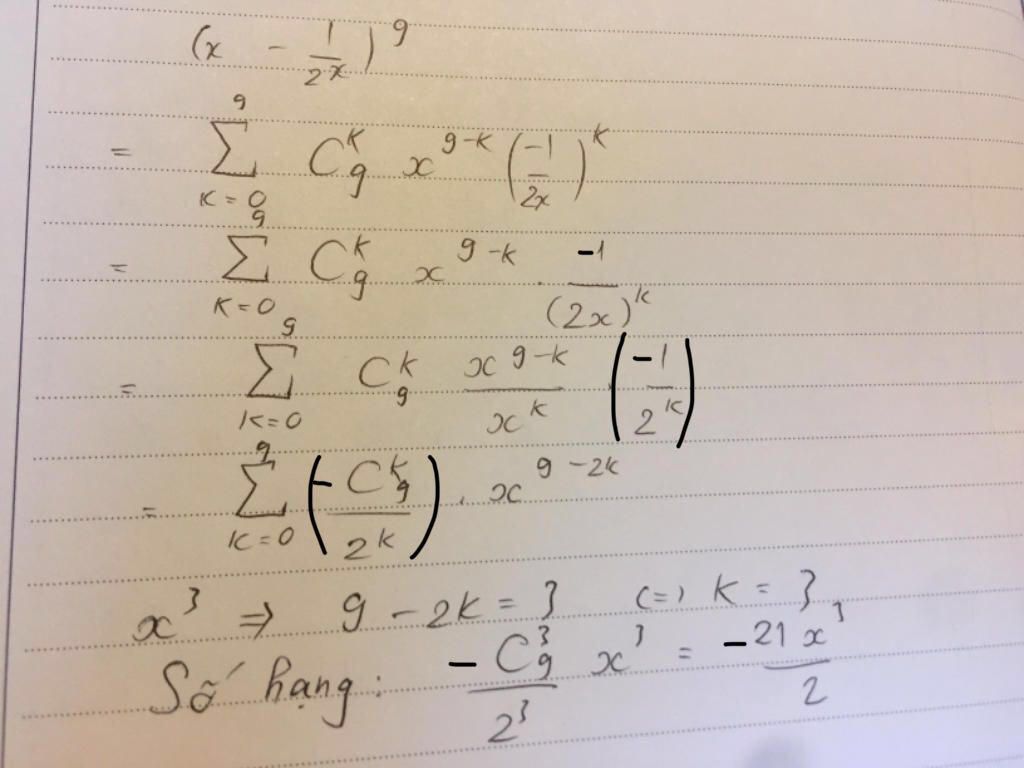 (x - 1/2x)^9
= ∑_{K=0}^{9} C_9^k x^{9-k} (-1/2x)^k
= ∑_{K=0}^{9} C_9^k x^{9-k} . -1/(2x)^k
= ∑_{K=0}^{9} C_9^k x^{9-k}/x^k (-1/2^k)
= ∑_{K=0}^{9} (-C_9^k/2^k) . x^{9-2k}
x^3 ⇒ 9 - 2k = 3 (=) k = 3
Số hạng: -C_9^3/2^3 x^3 = -21x^3/2